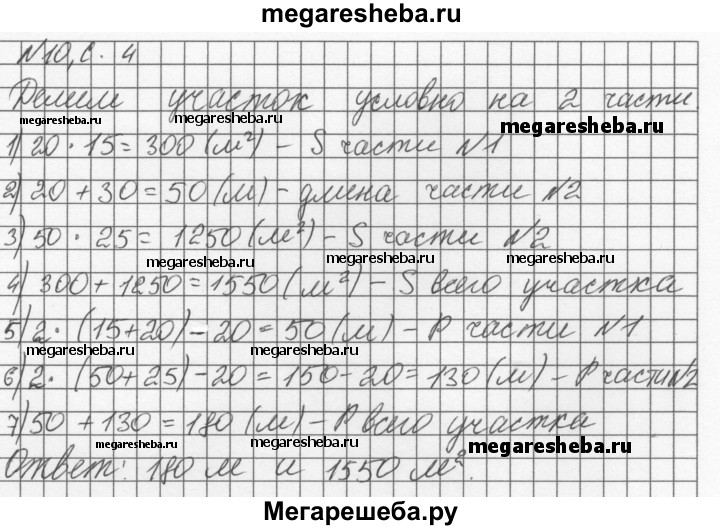 megaresheba.ru
№10, с. 4
megaresheba.ru
Делим участок условно на 2 части.
megaresheba.ru
1) 20 · 15 = 300 (м²) – S части №1
megaresheba.ru
2) 20 + 30 = 50 (м) – длина части №2
3) 50 · 25 = 1250 (м²) – S части №2
megaresheba.ru megaresheba.ru
4) 300 + 1250 = 1550 (м²) – S всего участка
5) 2 · (15+20) – 20 = 50 (м) – P части №1
megaresheba.ru megaresheba.ru
6) 2 · (50+25) – 20 = 150 – 20 = 130 (м) – P части №2
7) 50 + 130 = 180 (м) – P всего участка
megaresheba.ru megaresheba.ru megaresheba.ru
Ответ: 180 м и 1550 м².
Мегарешеба.ру